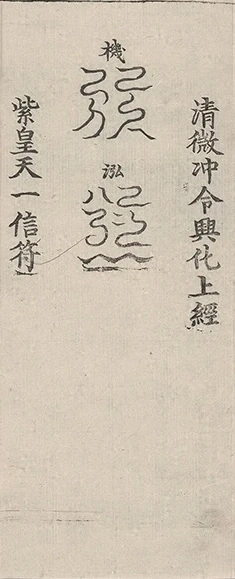 清微沖令興化上經
機
泓
紫皇天一信符